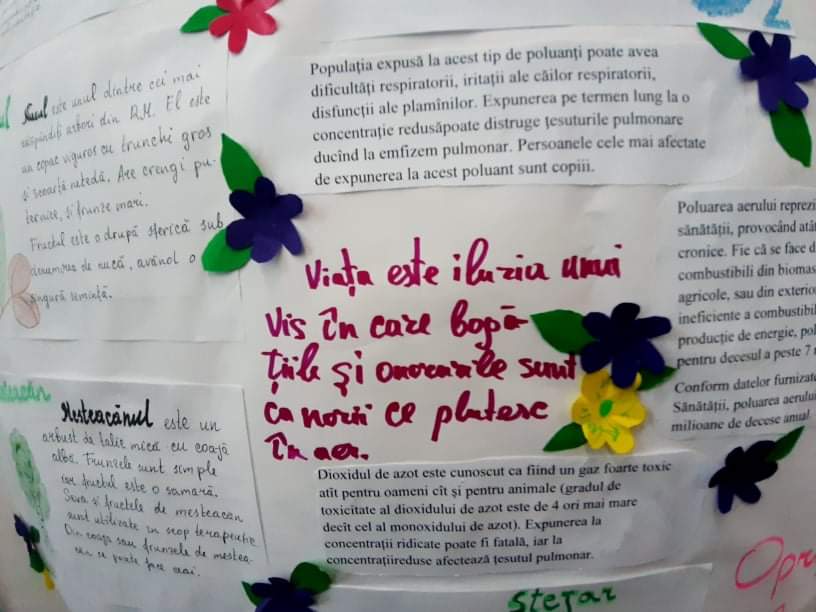 Nucul este unul dintre cei mai
răspîndiți arbori din R.M. El este
un copac viguros cu trunchi gros
și scoarță netedă. Are crengi pu-
ternice, și frunze mari.
Fructul este o drupă sferică sub
denumirea de nucă, avînd o
singură sămînță.
Populația expusă la acest tip de poluanți poate avea
dificultăți respiratorii, iritații ale căilor respiratorii,
disfuncții ale plamînilor. Expunerea pe termen lung la o
concentrație redusăpoate distruge țesuturile pulmonare
ducînd la emfizem pulmonar. Persoanele cele mai afectate
de expunerea la acest poluant sunt copiii.
Viața este iluzia unui
vis în care bogă-
țiile și onorurile sunt
ca norii ce plutesc
în aer.
Poluarea aerului reprezi
sănătății, provocând atât
cronice. Fie că se face d
combustibili din biomas
agricole, sau din exterior
ineficiente a combustibil
producție de energie, pol
pentru decesul a peste 7
Conform datelor furnizate
Sănătății, poluarea aerului
milioane de decese anual
Mesteacănul este un
arbust de talie mică cu coajă
albă. Frunzele sunt simple
iar fructul este o samară.
Seva și fructele de mesteacan
sunt utilizate în scop terapeutic
Din coaja sau frunzele de mestea-
can se poate face ceai.
Dioxidul de azot este cunoscut ca fiind un gaz foarte toxic
atît pentru oameni cît și pentru animale (gradul de
toxicitate al dioxidului de azot este de 4 ori mai mare
decît cel al monoxidului de azot). Expunerea la
concentrații ridicate poate fi fatală, iar la
concentrațiireduse afectează țesutul pulmonar.
Stejar